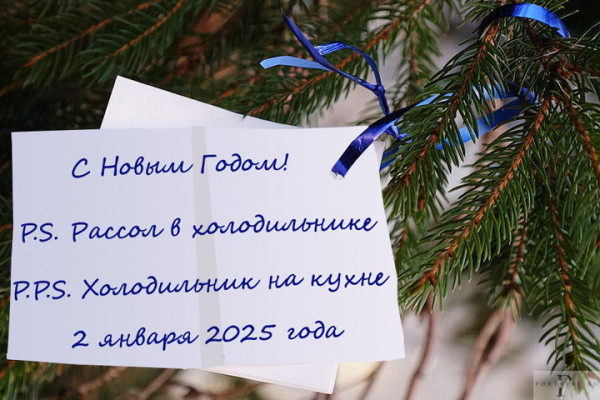 С Новым Годом!
P.S. Рассол в холодильнике
P.P.S. Холодильник на кухне
2 января 2025 года